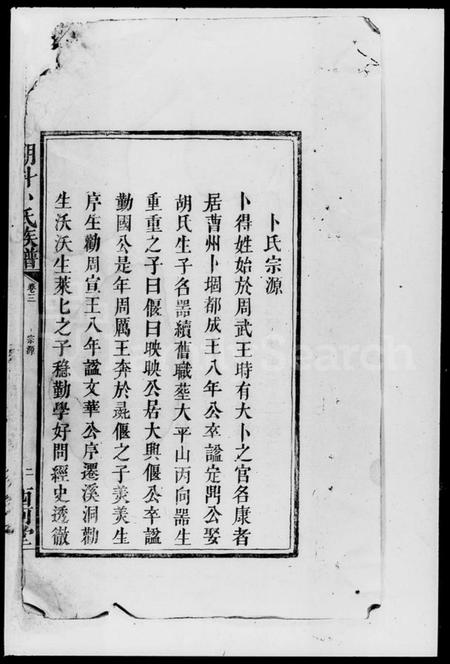 卜氏宗源
卜得姓始於周武王時有大卜之官名康者
居曹州卜堌都成王八年公卒諡定卽公娶
胡氏生子名噐續舊職塟大平山丙向噐生
重重之子曰偃曰映映公居大興偃公卒諡
勤國公是年周厲王奔於彘偃之子羙羙生
序生勷周宣王八年諡文華公序遷溪洞勷
生沃沃生萊七之子穏勤學好問經史透徹
卜氏族譜
卷三
宗源
二
西河堂
Search